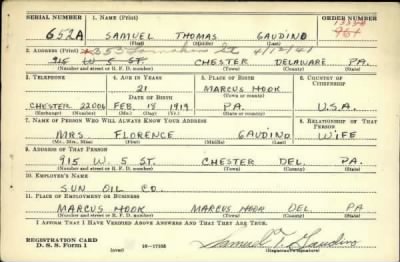 SERIAL NUMBER 1. NAME (Print) ORDER NUMBER
652A SAMUEL THOMAS GAUDINO 961
(First) (Middle) (Last)
2. ADDRESS (Print) 353 St 4/12/41
915 W 5 ST. CHESTER DELAWARE PA.
(Number and street or R. F. D. number) (Town) (County) (State)
3. TELEPHONE 4. AGE IN YEARS 5. PLACE OF BIRTH 6. COUNTRY OF CITIZENSHIP
21 MARCUS HOOK
DATE OF BIRTH (Town or county)
CHESTER 22006 FEB. 18 1919 PA. U.S.A.
(Exchange) (Number) (Mo.) (Day) (Yr.) (State or country)
7. NAME OF PERSON WHO WILL ALWAYS KNOW YOUR ADDRESS 8. RELATIONSHIP OF THAT PERSON
MRS FLORENCE GAUDINO WIFE
(Mr., Mrs., Miss) (First) (Middle) (Last)
9. ADDRESS OF THAT PERSON
915 W. 5 ST. CHESTER DEL. PA.
(Number and street or R. F. D. number) (Town) (County) (State)
10. EMPLOYER'S NAME
SUN OIL CO.
11. PLACE OF EMPLOYMENT OR BUSINESS
MARCUS HOOK MARCUS HOOK DEL PA
(Number and street or R. F. D. number) (Town) (County) (State)
I AFFIRM THAT I HAVE VERIFIED ABOVE ANSWERS AND THAT THEY ARE TRUE.
REGISTRATION CARD
D. S. S. Form 1 (over) 16—17105 Samuel T. Gaudino
(Registrant's signature)